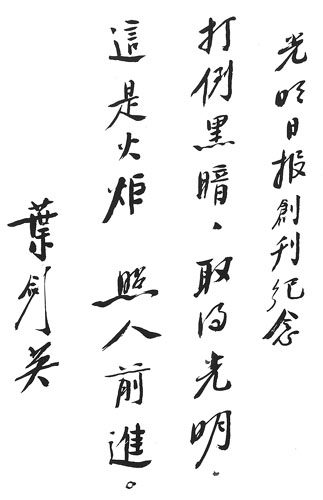 光明日报創刊纪念
打倒黑暗，取得光明。
這是火炬 照人前進。
葉剑英